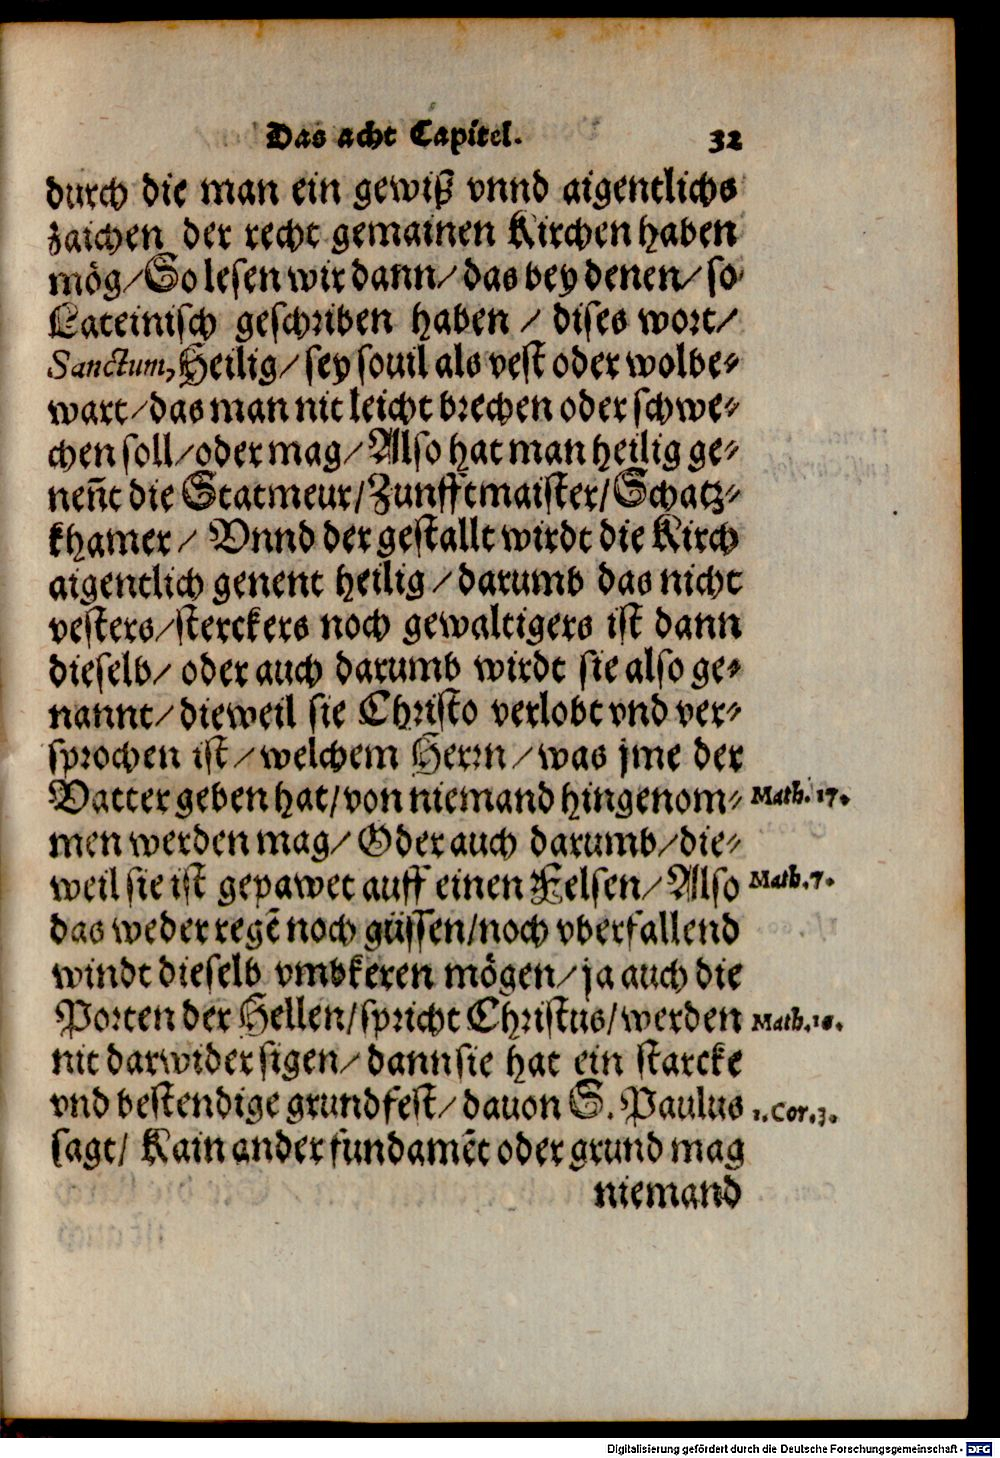 Das acht Capitel. 32
durch die man ein gewiß vnnd aigentlichs
zaichen der recht gemainen Kirchen haben
mög/ So lesen wir dann/ das bey denen/ so
Lateinisch geschriben haben / dises wort/
Sanctum, Heilig/ sey souil als vest oder wolbe⸗
wart/ das man nit leicht brechen oder schwe⸗
chen soll/ oder mag/ Also hat man heilig ge⸗
nen̄t die Statmeur/ Zunfftmaister/ Schatz⸗
khamer/ Vnnd der gestallt wirdt die Kirch
aigentlich genent heilig/ darumb das nicht
vesters/ sterckers noch gewaltigers ist dann
dieselb/ oder auch darumb wirdt sie also ge⸗
nannt/ dieweil sie Christo verlobt vnd ver⸗
sprochen ist/ welchem Herrn/ was jme der
Vatter geben hat/ von niemand hingenom⸗ Math. 17.
men werden mag/ Oder auch darumb/ die⸗
weil sie ist gepawet auff einen Felsen/ Also Math. 7.
das weder regē noch güssen/ noch vberfallend
windt dieselb vmbkeren mögen/ ja auch die
Porten der Hellen/ spricht Christus/ werden Math. 16.
nit darwider sigen/ dann sie hat ein starcke
vnd bestendige grundfest/ dauon S. Paulus 1. Cor. 3.
sagt/ Kain ander fundamēt oder grund mag
niemand
Digitalisierung gefördert durch die Deutsche Forschungsgemeinschaft - DFG